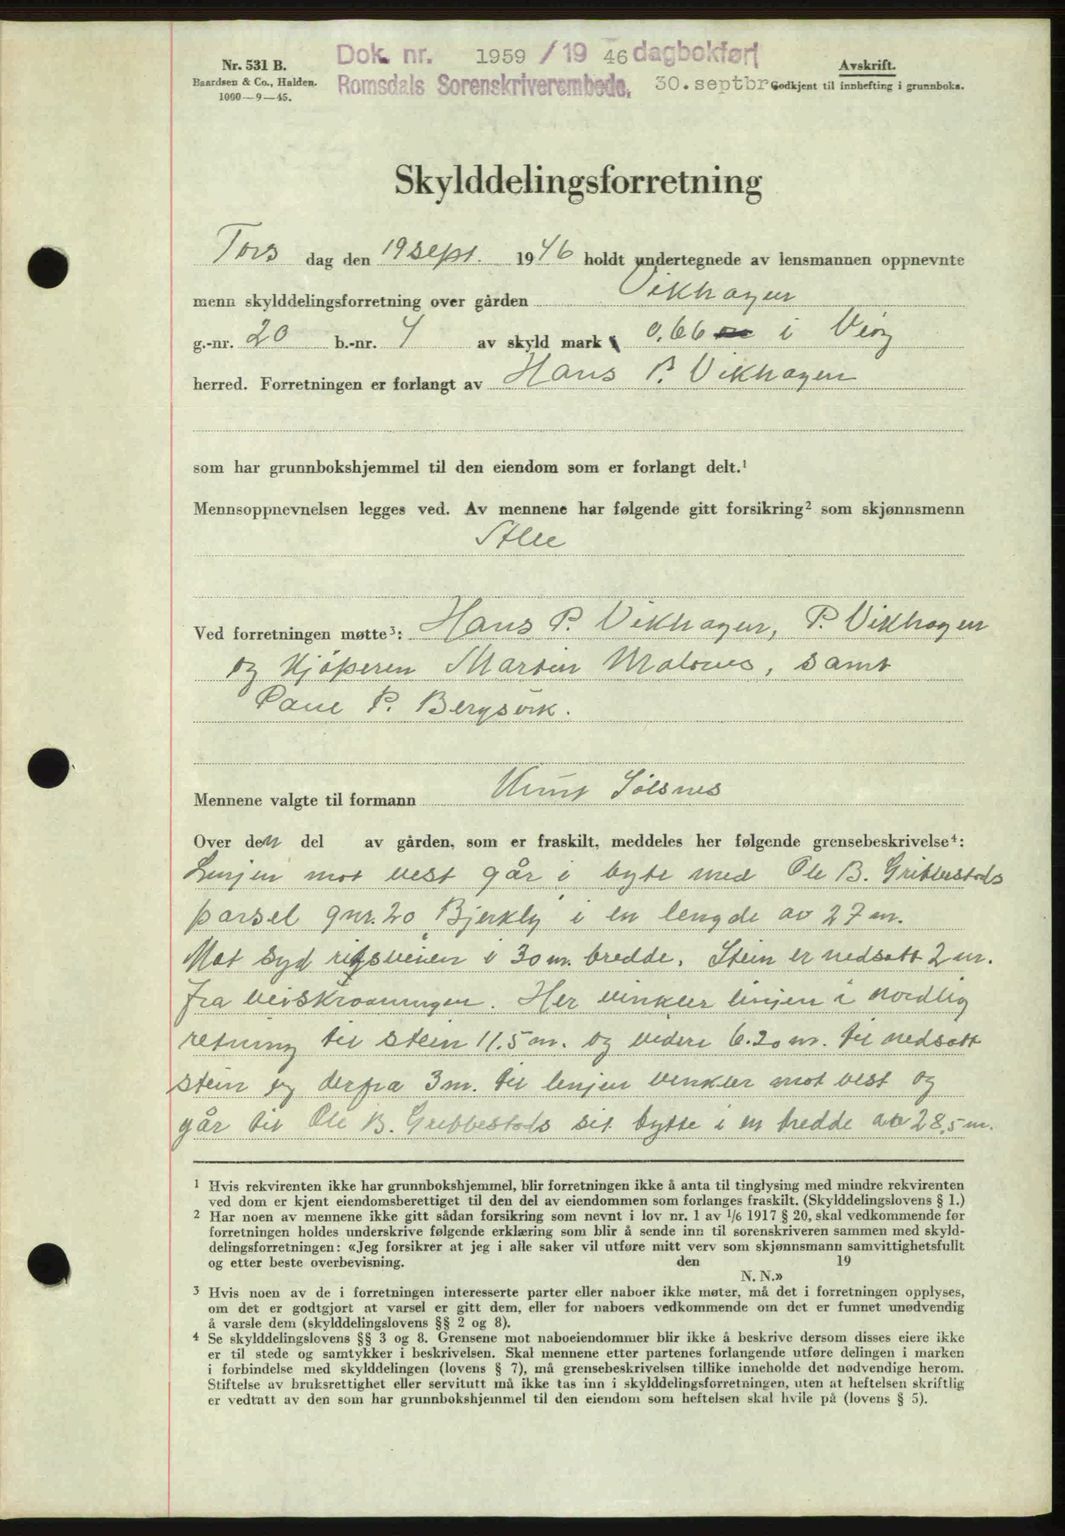 Nr. 531 B.
Baardsen & Co., Halden.
1000—9—45.
Dok. nr. 1959 / 19 46 dagbokført
Romsdals Sorenskriverembede, 30. septbr
Avskrift.
Godkjent til innhefting i grunnboka.
Skylddelingsforretning
Tors dag den 19 sept. 1946 holdt undertegnede av lensmannen oppnevnte
menn skylddelingsforretning over gården Vikhagen
g.-nr. 20 b.-nr. 4 av skyld mark 0.66 i Veøy
herred. Forretningen er forlangt av Hans P. Vikhagen
som har grunnbokshjemmel til den eiendom som er forlangt delt.¹
Mennsoppnevnelsen legges ved. Av mennene har følgende gitt forsikring² som skjønnsmenn
Alle
Ved forretningen møtte³: Hans P. Vikhagen, P. Vikhagen
og Kjøperen Martin Malones, samt
Paul P. Bergsvik.
Mennene valgte til formann Knut Sølsnes
Over den del av gården, som er fraskilt, meddeles her følgende grensebeskrivelse⁴:
Linjen mot vest går i byte med Ole B. Gribbestads
parsel gnr. 20 "Bjerkly" i en lengde av 27 m.
Mot syd riksveien i 30 m. bredde. Stein er nedsatt 2 m.
fra veiskråningen. Her vinkler linjen i nordlig
retning til stein 11.5 m. og videre 6.20 m. til nedsatt
stein og derfra 3 m. til linjen vinkler mot vest og
går til Ole B. Gribbestads sit bytte i en bredde av 28,5 m.
¹ Hvis rekvirenten ikke har grunnbokshjemmel, blir forretningen ikke å anta til tinglysing med mindre rekvirenten
ved dom er kjent eiendomsberettiget til den del av eiendommen som forlanges fraskilt. (Skylddelingslovens § 1.)
² Har noen av mennene ikke gitt sådan forsikring som nevnt i lov nr. 1 av 1/6 1917 § 20, skal vedkommende før
forretningen holdes underskrive følgende erklæring som blir å sende inn til sorenskriveren sammen med skyld-
delingsforretningen: «Jeg forsikrer at jeg i alle saker vil utføre mitt verv som skjønnsmann samvittighetsfullt
og etter beste overbevisning. den 19
N. N.»
³ Hvis noen av de i forretningen interesserte parter eller naboer ikke møter, må det i forretningen opplyses,
om det er godtgjort at varsel er gitt dem, eller for naboers vedkommende om det er funnet unødvendig
å varsle dem (skylddelingslovens §§ 2 og 8).
⁴ Se skylddelingslovens §§ 3 og 8. Grensene mot naboeiendommer blir ikke å beskrive dersom disses eiere ikke
er til stede og samtykker i beskrivelsen. Skal mennene etter partenes forlangende utføre delingen i marken
i forbindelse med skylddelingen (lovens § 7), må grensebeskrivelsen tillike inneholde det nødvendige herom.
Stiftelse av bruksrettighet eller servitutt må ikke tas inn i skylddelingsforretningen, uten at heftelsen skriftlig
er vedtatt av den som har grunnbokshjemmel til den eiendom som heftelsen skal hvile på (lovens § 5).